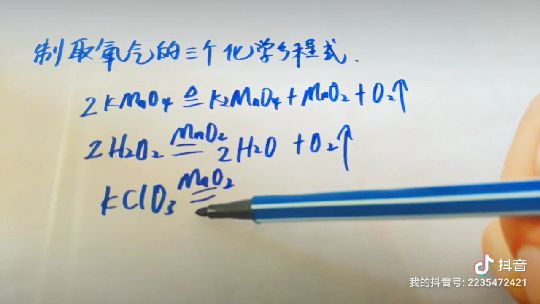 制取氧气的三个化学方程式.
2KMnO₄ ≜ K₂MnO₄ + MnO₂ + O₂↑
2H₂O₂ =MnO₂= 2H₂O + O₂↑
KClO₃ =MnO₂=
抖音
我的抖音号: 2235472421